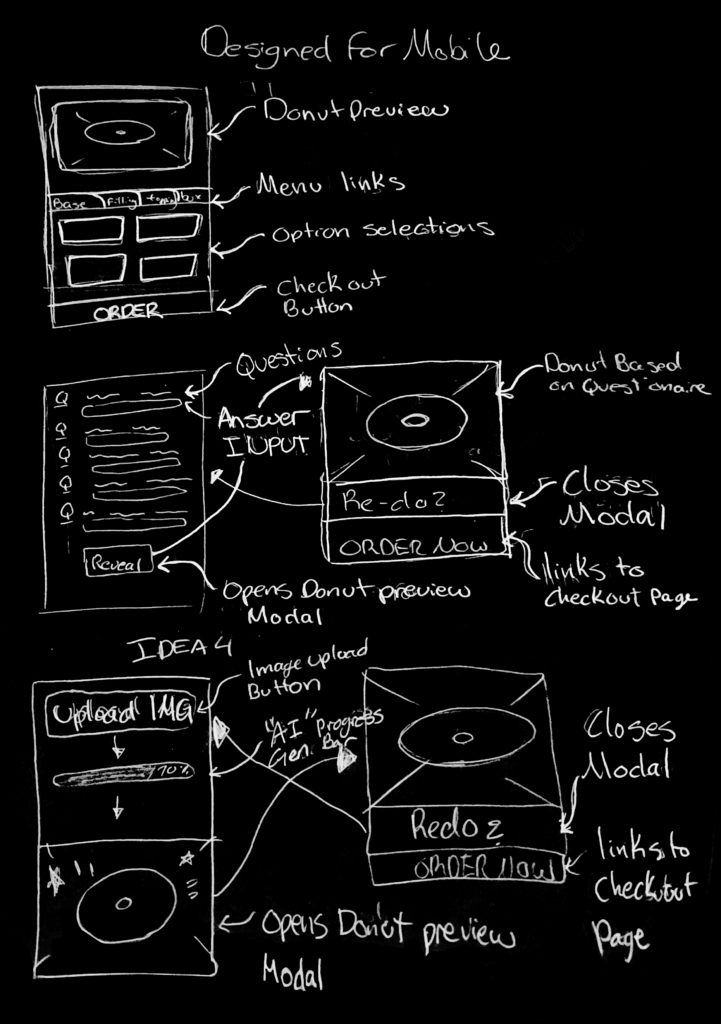 Designed For Mobile
Donut Preview
Menu links
Base Filling topping box
Option selections
Checkout
Button
ORDER
Questions
Donut Based
on Questionaire
Q
Answer
INPUT
Q
Q
Q
Re-do?
Closes
Modal
ORDER NOW
Reveal
links to
checkout page
Opens Donut preview
Modal
IDEA 4
Image upload
Button
Upload IMG
"AI" Progress
Gen. Bar
70%
Closes
Modal
Redo?
ORDER NOW
links to
Checkout
page
Opens Donut preview
Modal